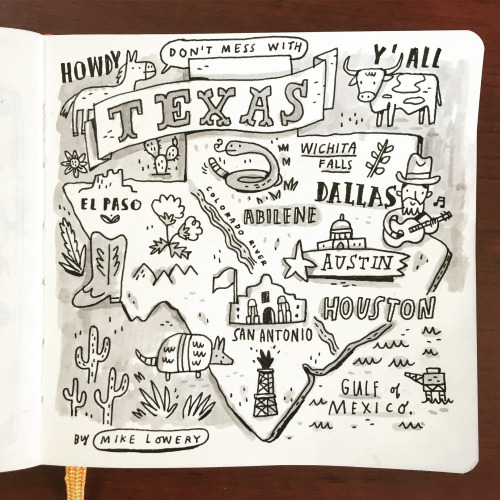 HOWDY
DON'T MESS WITH
Y'ALL
TEXAS
WICHITA
FALLS
DALLAS
EL PASO
COLORADO RIVER
ABILENE
AUSTIN
SAN ANTONIO
HOUSTON
GULF of
MEXICO.
BY MIKE LOWERY